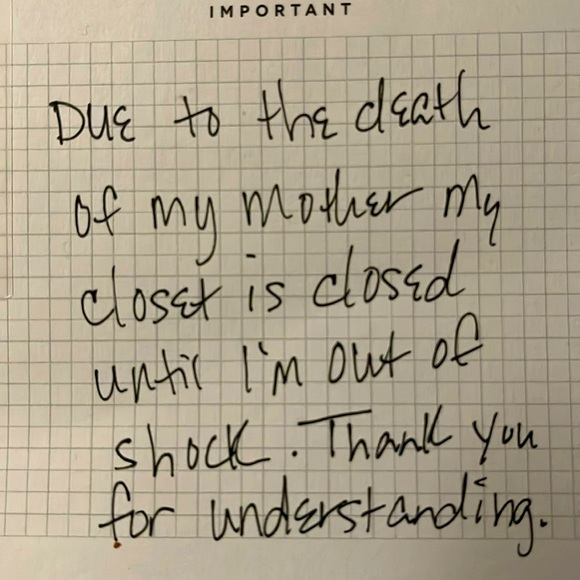 IMPORTANT
Due to the death
of my mother my
closet is closed
until I'm out of
shock. Thank you
for understanding.